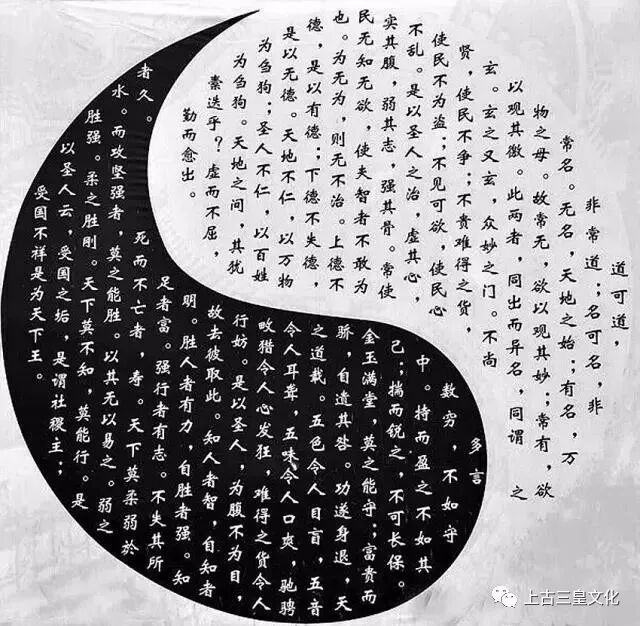 道可道，
非常道；名可名，非
常名。无名，天地之始；有名，万
物之母。故常无，欲以观其妙；常有，欲
以观其徼。此两者，同出而异名，同谓 之
玄。玄之又玄，众妙之门。不尚
贤，使民不争；不贵难得之货，
使民不为盗；不见可欲，使民心
不乱。是以圣人之治，虚其心，
实其腹，弱其志，强其骨。常使
民无知无欲，使夫智者不敢为
也。为无为，则无不治。上德不
德，是以有德；下德不失德，
是以无德。天地不仁，以万物
为刍狗；圣人不仁，以百姓
为刍狗。天地之间，其犹
素迭乎？虚而不屈，
勤而愈出。
多言
数穷，不如守
中。持而盈之不如其
己；揣而锐之，不可长保。
金玉满堂，莫之能守；富贵而
骄，自道其咎。功遂身退，天
之道载。五色令人目盲，五音
令人耳聋，五味令人口爽，驰骋
畋猎令人心发狂，难得之货令人
行妨。是以圣人，为腹不为目，
故去彼取此。知人者智，自知者
明。胜人者有力，自胜者强。知
足者富。强行者有志。不失其所
者久。死而不亡者，寿。天下莫柔弱於
水。而攻坚强者，莫之能胜。以其无以易之。弱之
胜强。柔之胜刚。天下莫不知，莫能行。是
以圣人云，受国之垢，是谓社稷主；
受国不祥是为天下王。
上古三皇文化